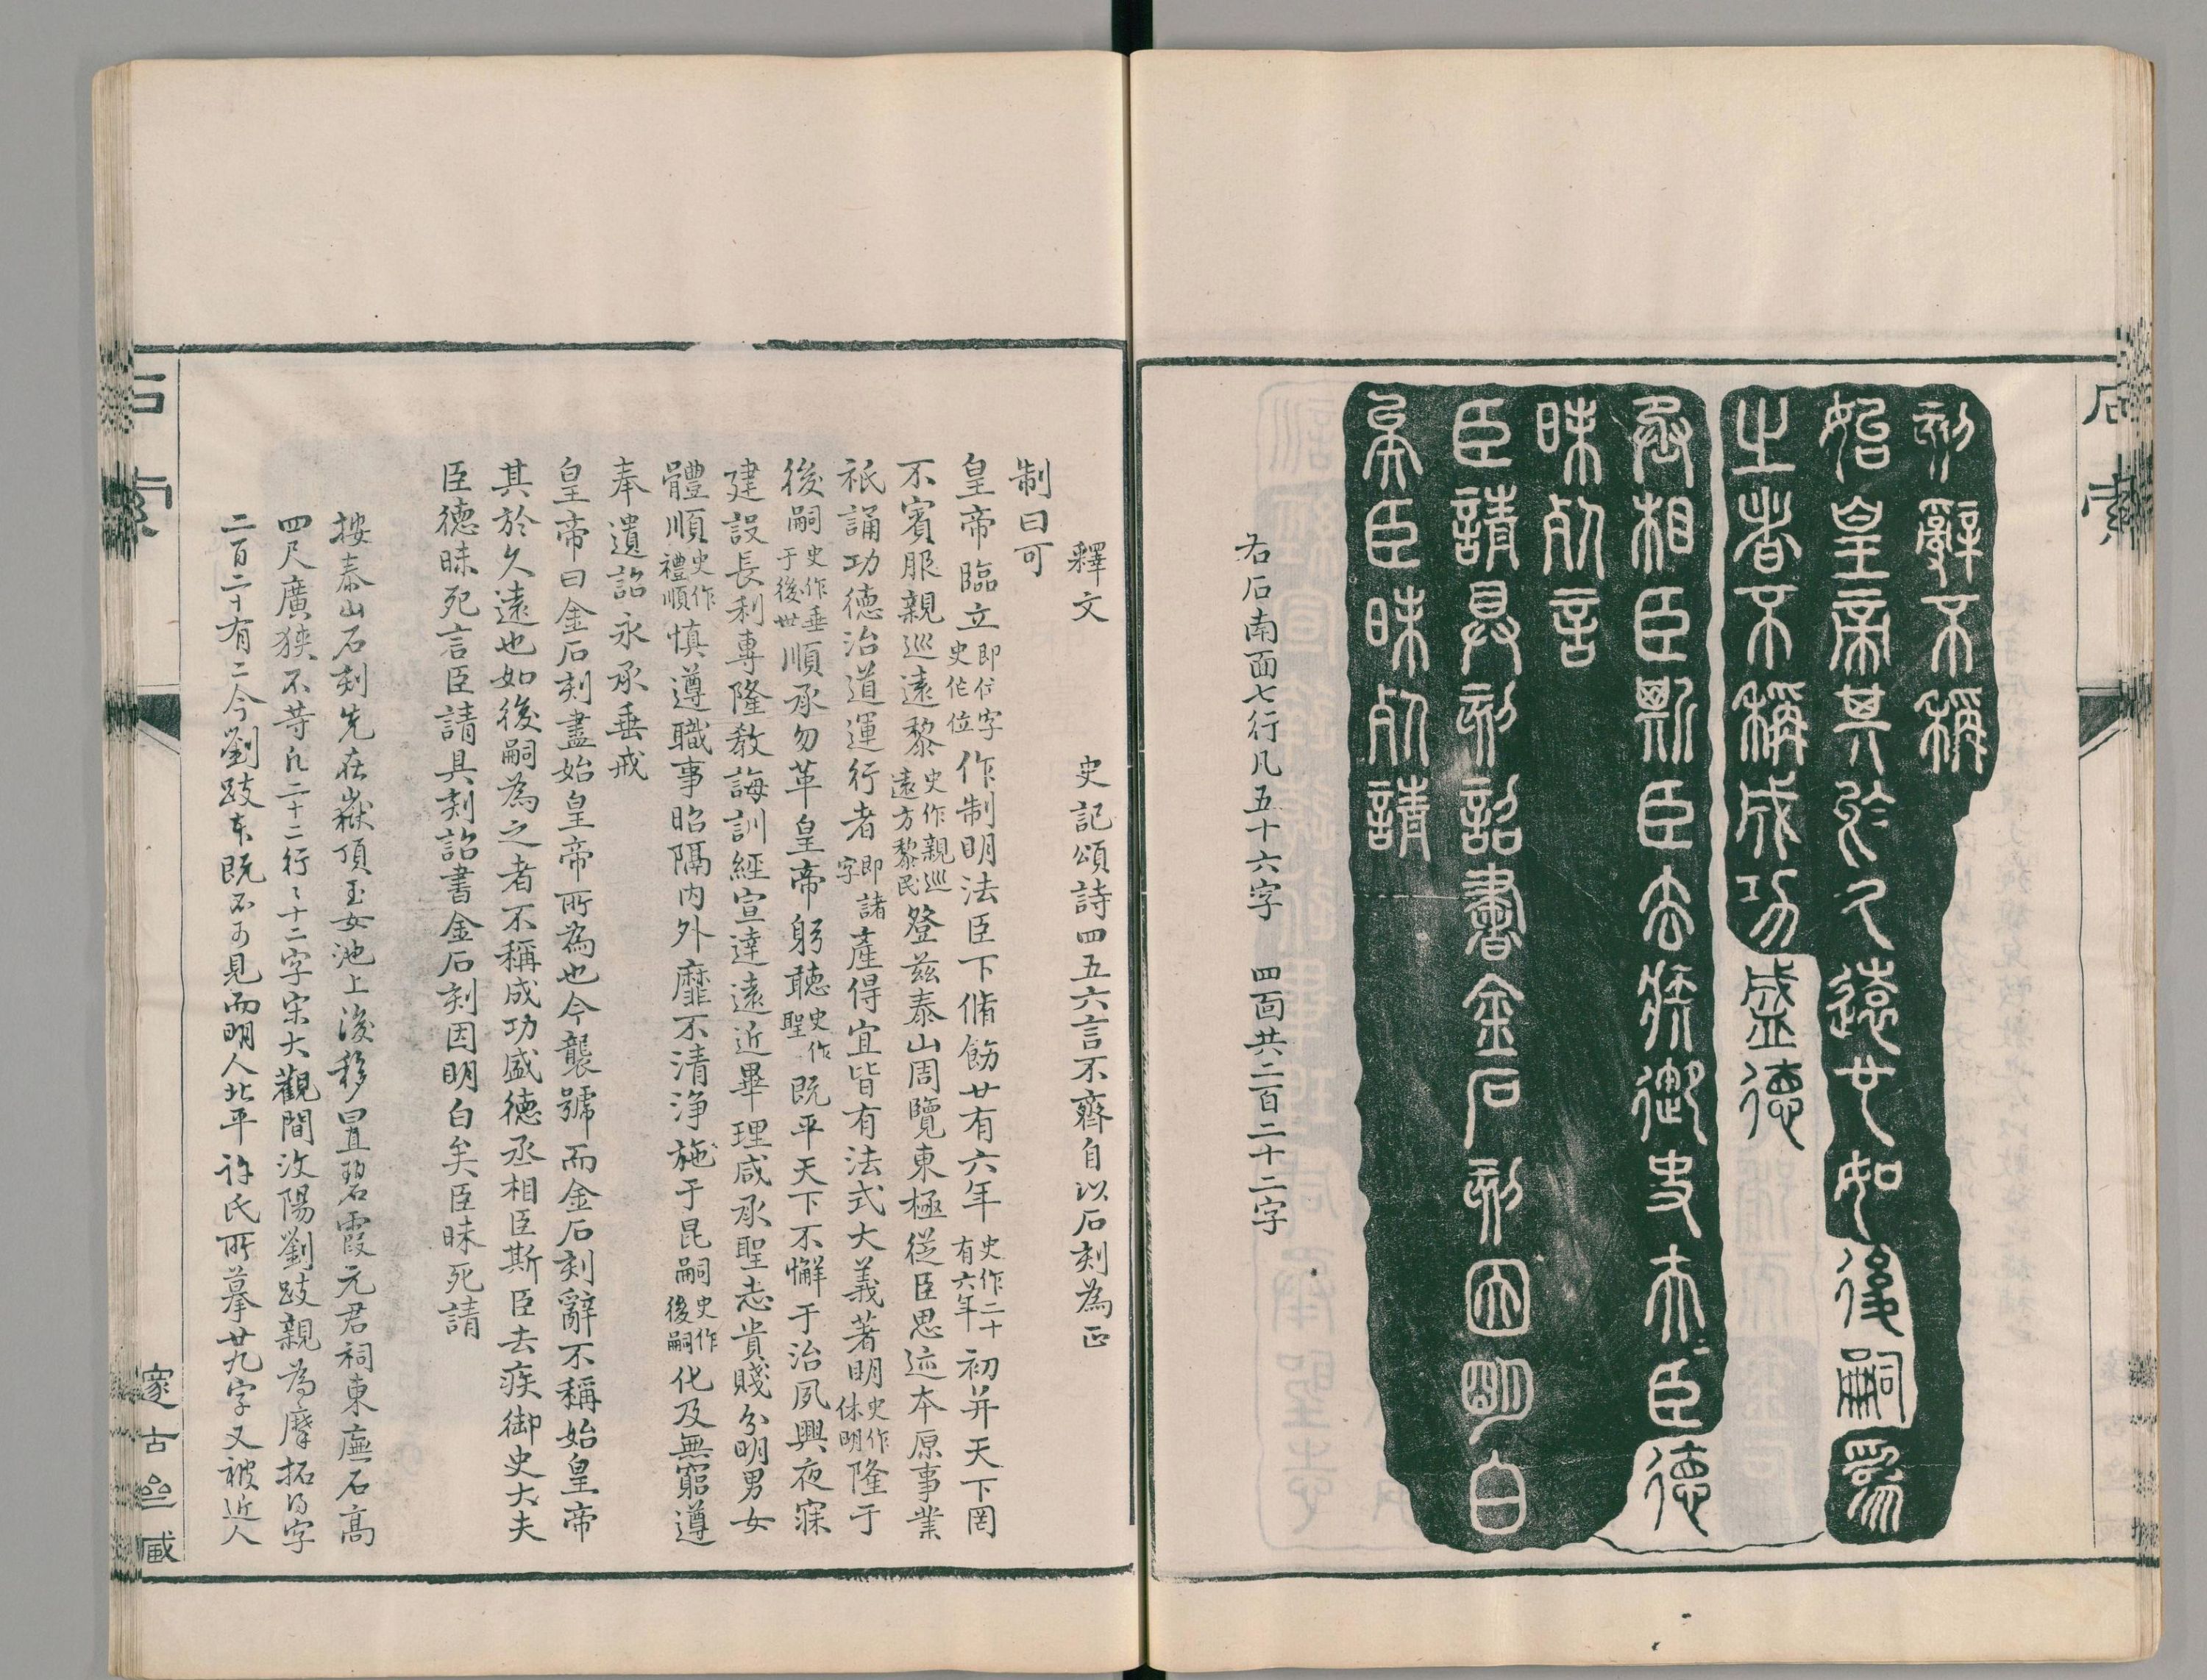 石索
刻辭不稱
始皇帝其於久遠也如後嗣為
之者不稱成功盛德
丞相臣斯臣去疾御史夫臣德
昧死言
臣請具刻詔書金石刻因明白
矣臣昧死請
右石南面七行凡五十六字　四面共二百二十二字
釋文　史記頌詩四五六言不齊自以石刻為正
制曰可
皇帝臨立即位字史作位作制明法臣下脩飭廿有六年史作二十有六年初并天下罔
不賓服親巡遠黎史作親巡遠方黎民登茲泰山周覽東極從臣思迹本原事業
祇誦功德治道運行者即諸字產得宜皆有法式大義著明史作休明隆于
後嗣史作垂于後世順承勿革皇帝躬聽史作聖既平天下不懈于治夙興夜寐
建設長利專隆教誨訓經宣達遠近畢理咸承聖志貴賤分明男女
體順史作禮順慎遵職事昭隔内外靡不清淨施于昆嗣史作後嗣化及無窮遵
奉遺詔永承垂戒
皇帝曰金石刻盡始皇帝所為也今襲號而金石刻辭不稱始皇帝
其於久遠也如後嗣為之者不稱成功盛德丞相臣斯臣去疾御史大夫
臣德昧死言臣請具刻詔書金石刻因明白矣臣昧死請
按泰山石刻先在嶽頂玉女池上後移置碧霞元君祠東廡石高
四尺廣狹不等凡二十二行〻十二字宋大觀間汶陽劉跂親為摩拓得字
二百二十有二今劉跂本既不可見而明人北平許氏所摹廿九字又被近人
石索
邃古亝臧